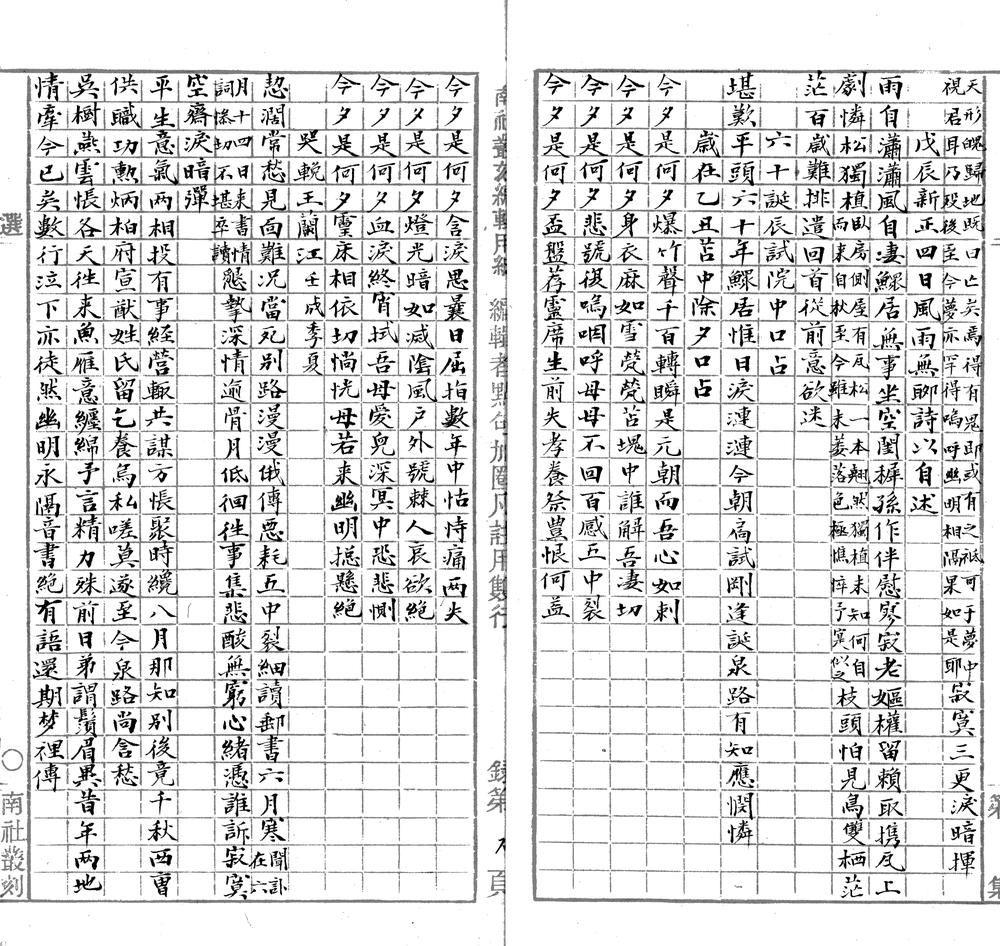 天形魄歸地既曰亡矣焉得有鬼即或有之祗可于夢中
視君耳乃歿後至今夢亦罕得嗚呼幽明相隔果如是耶
寂寞三更淚暗揮
戊辰新正四日風雨無聊詩以自述
雨自瀟瀟風自凄鰥居無事坐空閨穉孫作伴慰寥寂老嫗權留賴取携瓦上
劇憐松獨植
臥房側屋有瓦松一本翹然獨植未知何自
而來自秋至今雖未萎落色極憔悴予寞似之
枝頭怕見鳥雙栖茫
茫百歲難排遣回首從前意欲迷
六十誕辰試院中口占
堪歎平頭六十年鰥居惟日淚漣漣今朝扃試剛逢誕泉路有知應憫憐
歲在乙丑苫中除夕口占
今夕是何夕爆竹聲千百轉瞬是元朝而吾心如刺
今夕是何夕身衣麻如雪煢煢苫塊中誰解吾凄切
今夕是何夕悲號復嗚咽呼母母不回百感五中裂
今夕是何夕盃盤荐靈席生前失孝養祭豐恨何益
南社叢刻編輯用紙 編輯者點句加圈凡註用雙行
頁
今夕是何夕含淚思曩日屈指數年中怙恃痛兩失
今夕是何夕燈光暗如滅陰風戶外號棘人哀欲絕
今夕是何夕血淚終宵拭吾母愛兒深冥中恐悲惻
今夕是何夕靈床相依切惝恍母若来幽明摠懸絕
哭輓王蘭江 壬戌季夏
恝濶常愁見面難况當死别路漫漫俄傳恶耗五中裂細讀郵書六月寒
聞訃在六
月十四日來書情
詞慘切不堪卒讀
懇摯深情逾骨月低徊徃事集悲酸無窮心緒憑誰訴寂寞
空齋淚暗彈
平生意氣兩相投有事經營輒共謀方悵聚時纔八月那知别後竟千秋西曹
供職功勲炳柏府宣猷姓氏留乞養烏私嗟莫遂至今泉路尚含愁
吳樹燕雲悵各天徃来魚雁意纏綿予言精力殊前日弟謂鬚眉異昔年兩地
情牽今已矣數行泣下亦徒然幽明永隔音書絕有語還期梦裡傳
選
南社叢刻